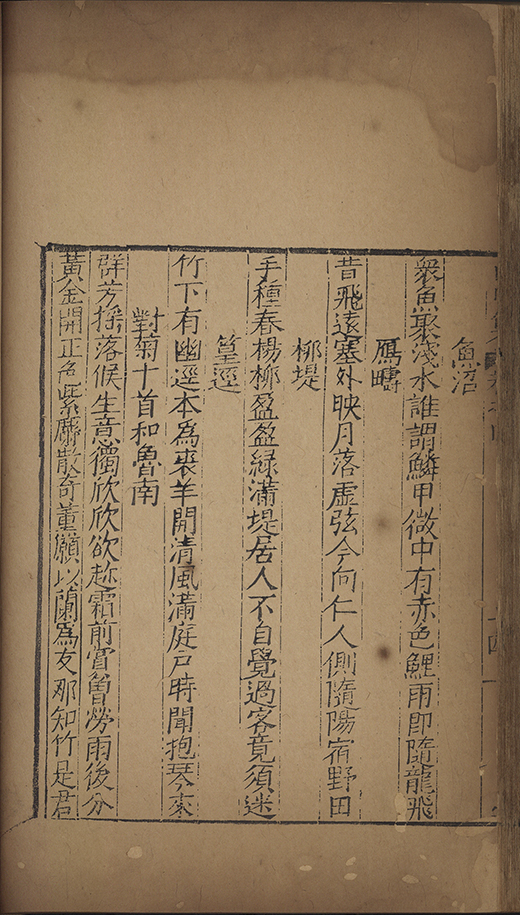 魚沼
衆魚聚淺水誰謂鱗甲微中有赤色鯉雨即隨龍飛
鴈疇
昔飛遠塞外映月落虛弦今向仁人側隨陽宿野田
柳堤
手種春楊柳盈盈緑滿堤居人不自覺過客竟須迷
篁逕
竹下有幽逕本為裘羊開清風滿庭戸時聞抱琴來
對菊十首和魯南
群芳揺落候生意獨欣欣欲趂霜前賞曾勞雨後分
黃金開正色紫麝散奇薰願以蘭為友那知竹是君